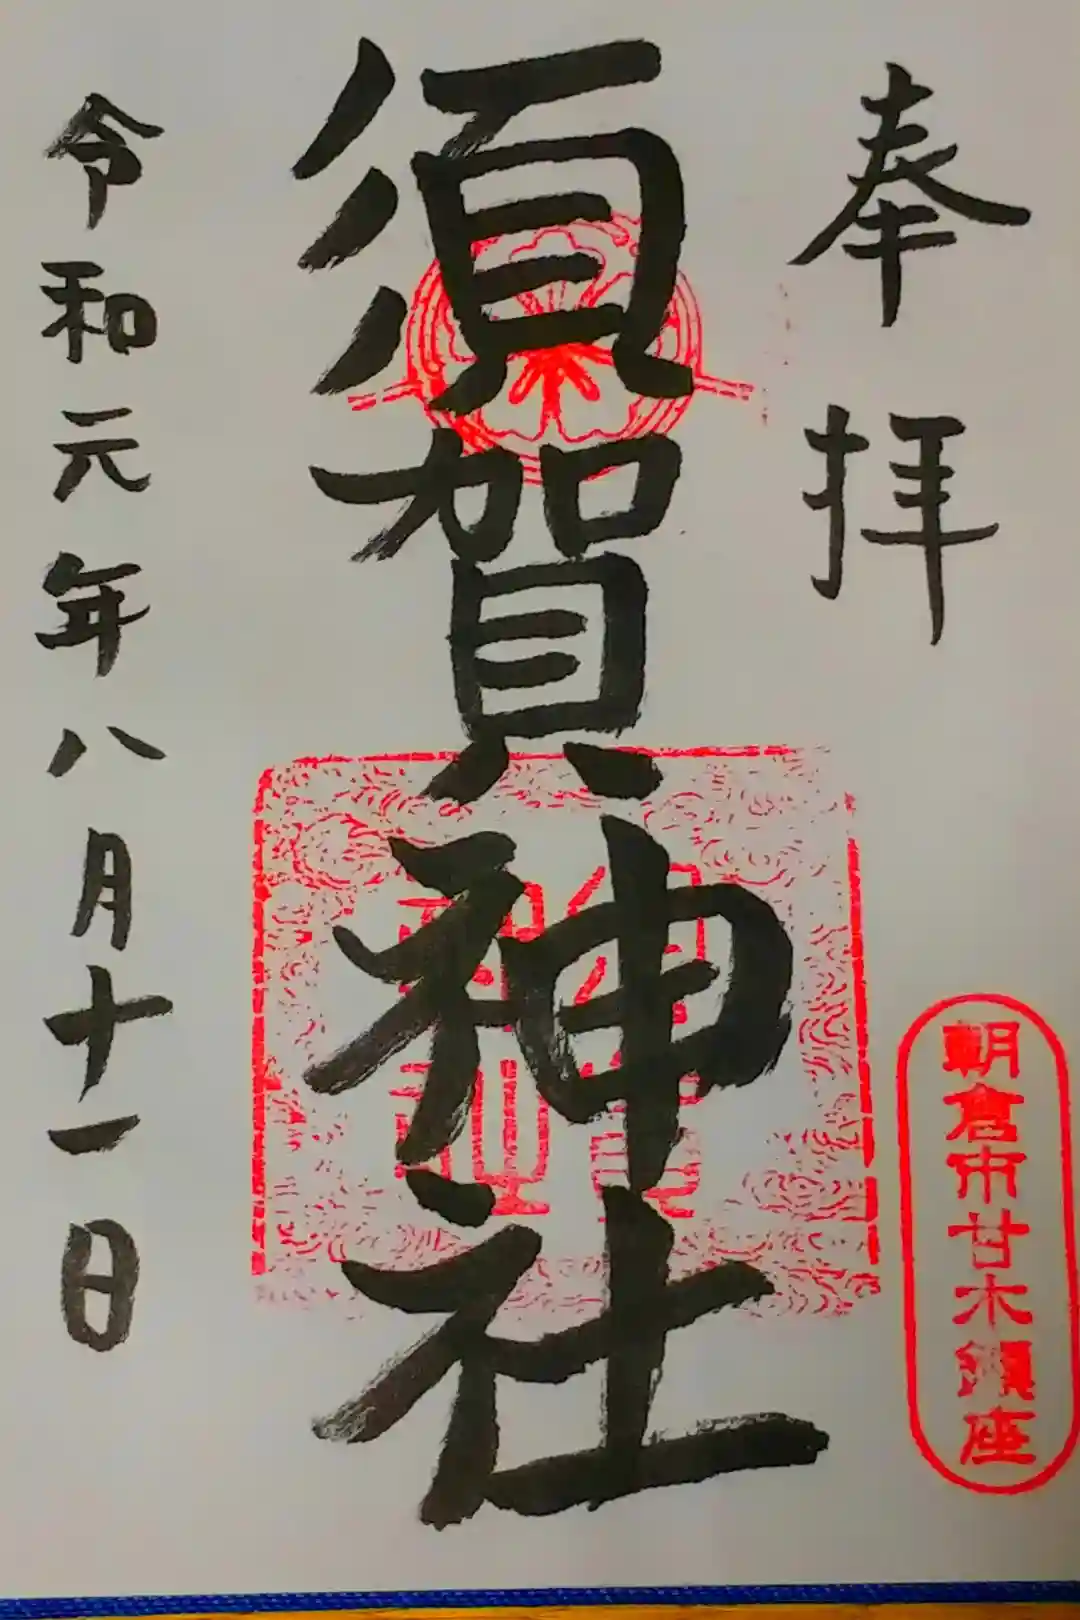 奉拝
朝倉市甘木鎮座
須賀神社
令和元年八月十一日